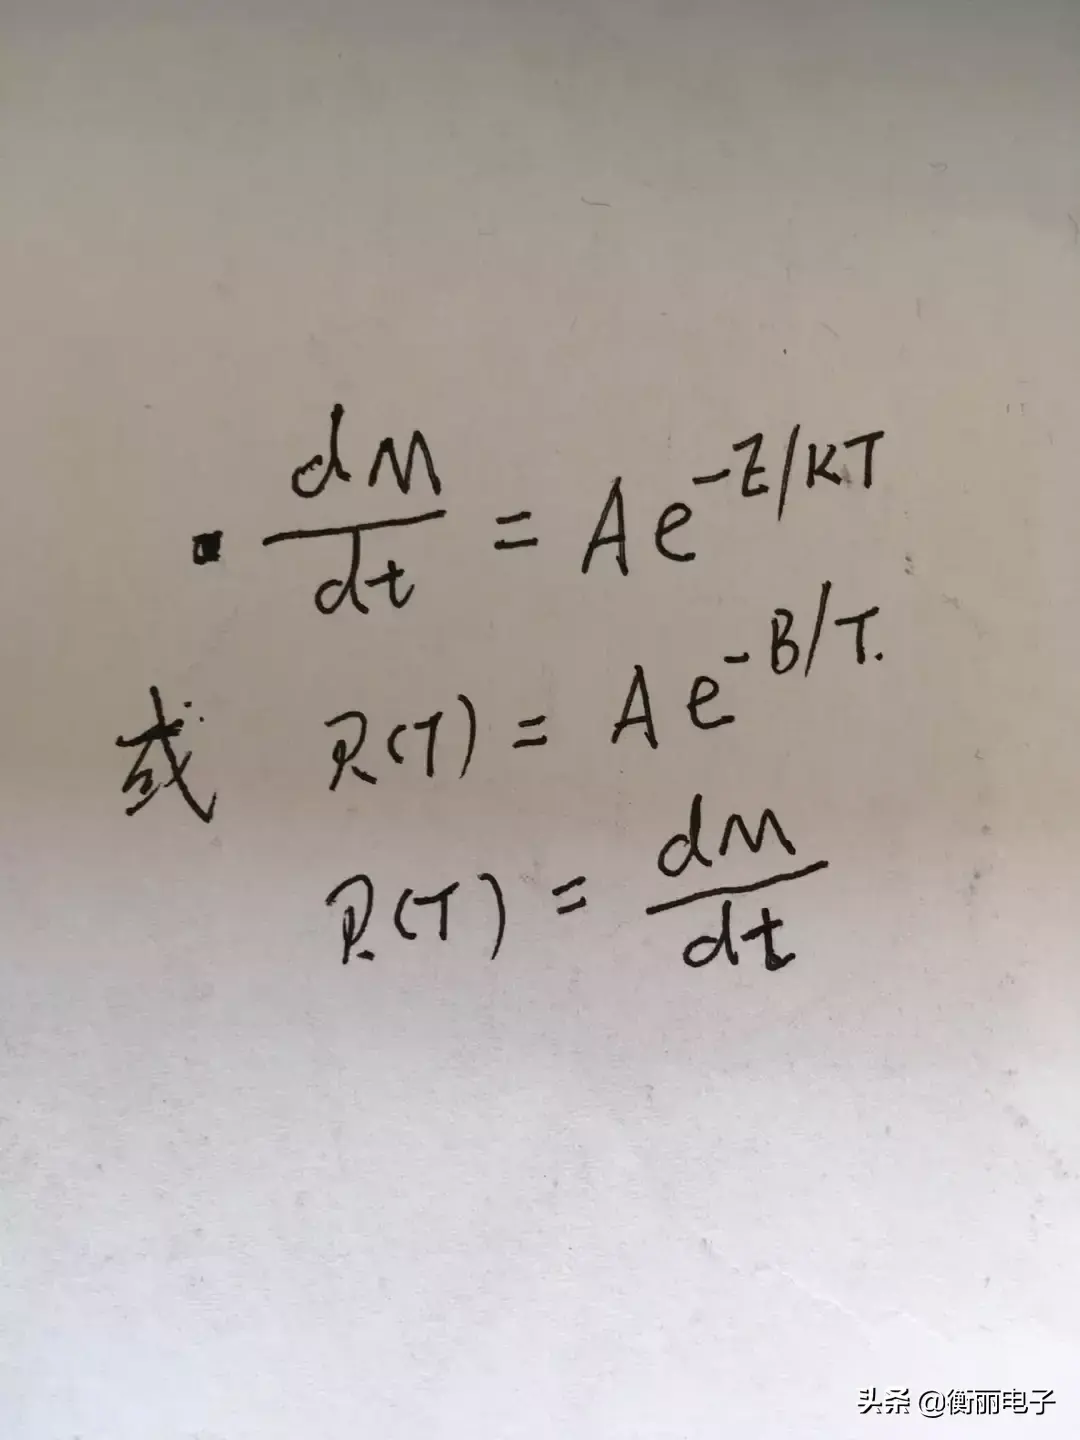 dM/dt = Ae^{-E/KT}
或 R(T) = Ae^{-B/T}.
R(T) = dM/dt
头条 @衡丽电子